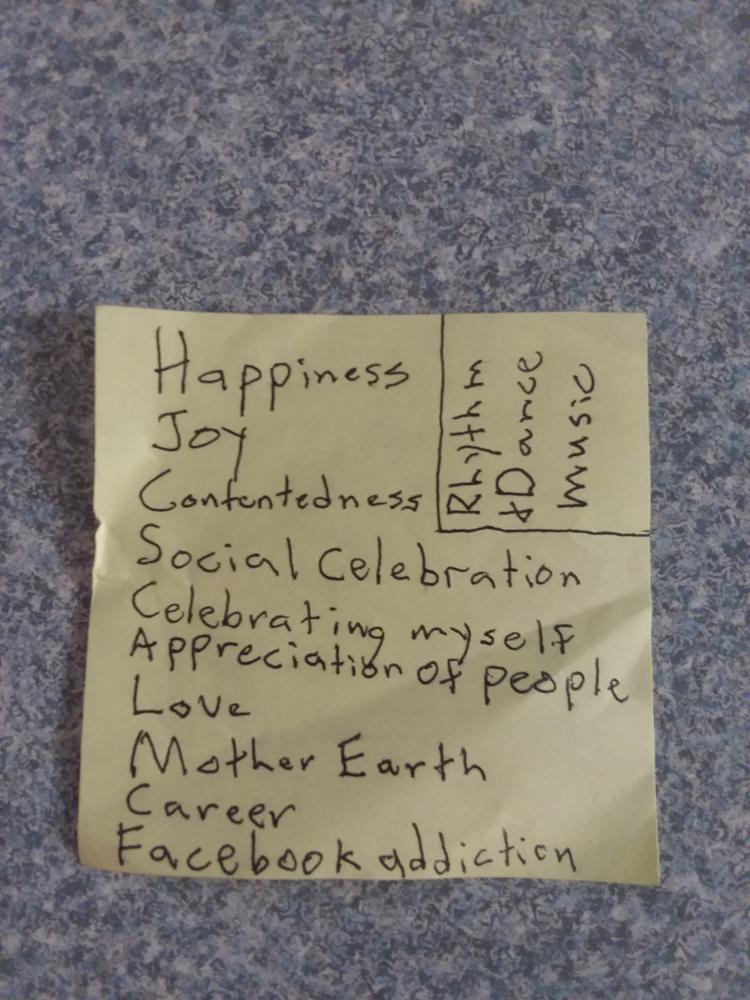 Happiness
Joy
Contentedness
Social Celebration
Celebrating myself
Appreciation of people
Love
Mother Earth
Career
Facebook addiction
Rhythm
+Dance
music